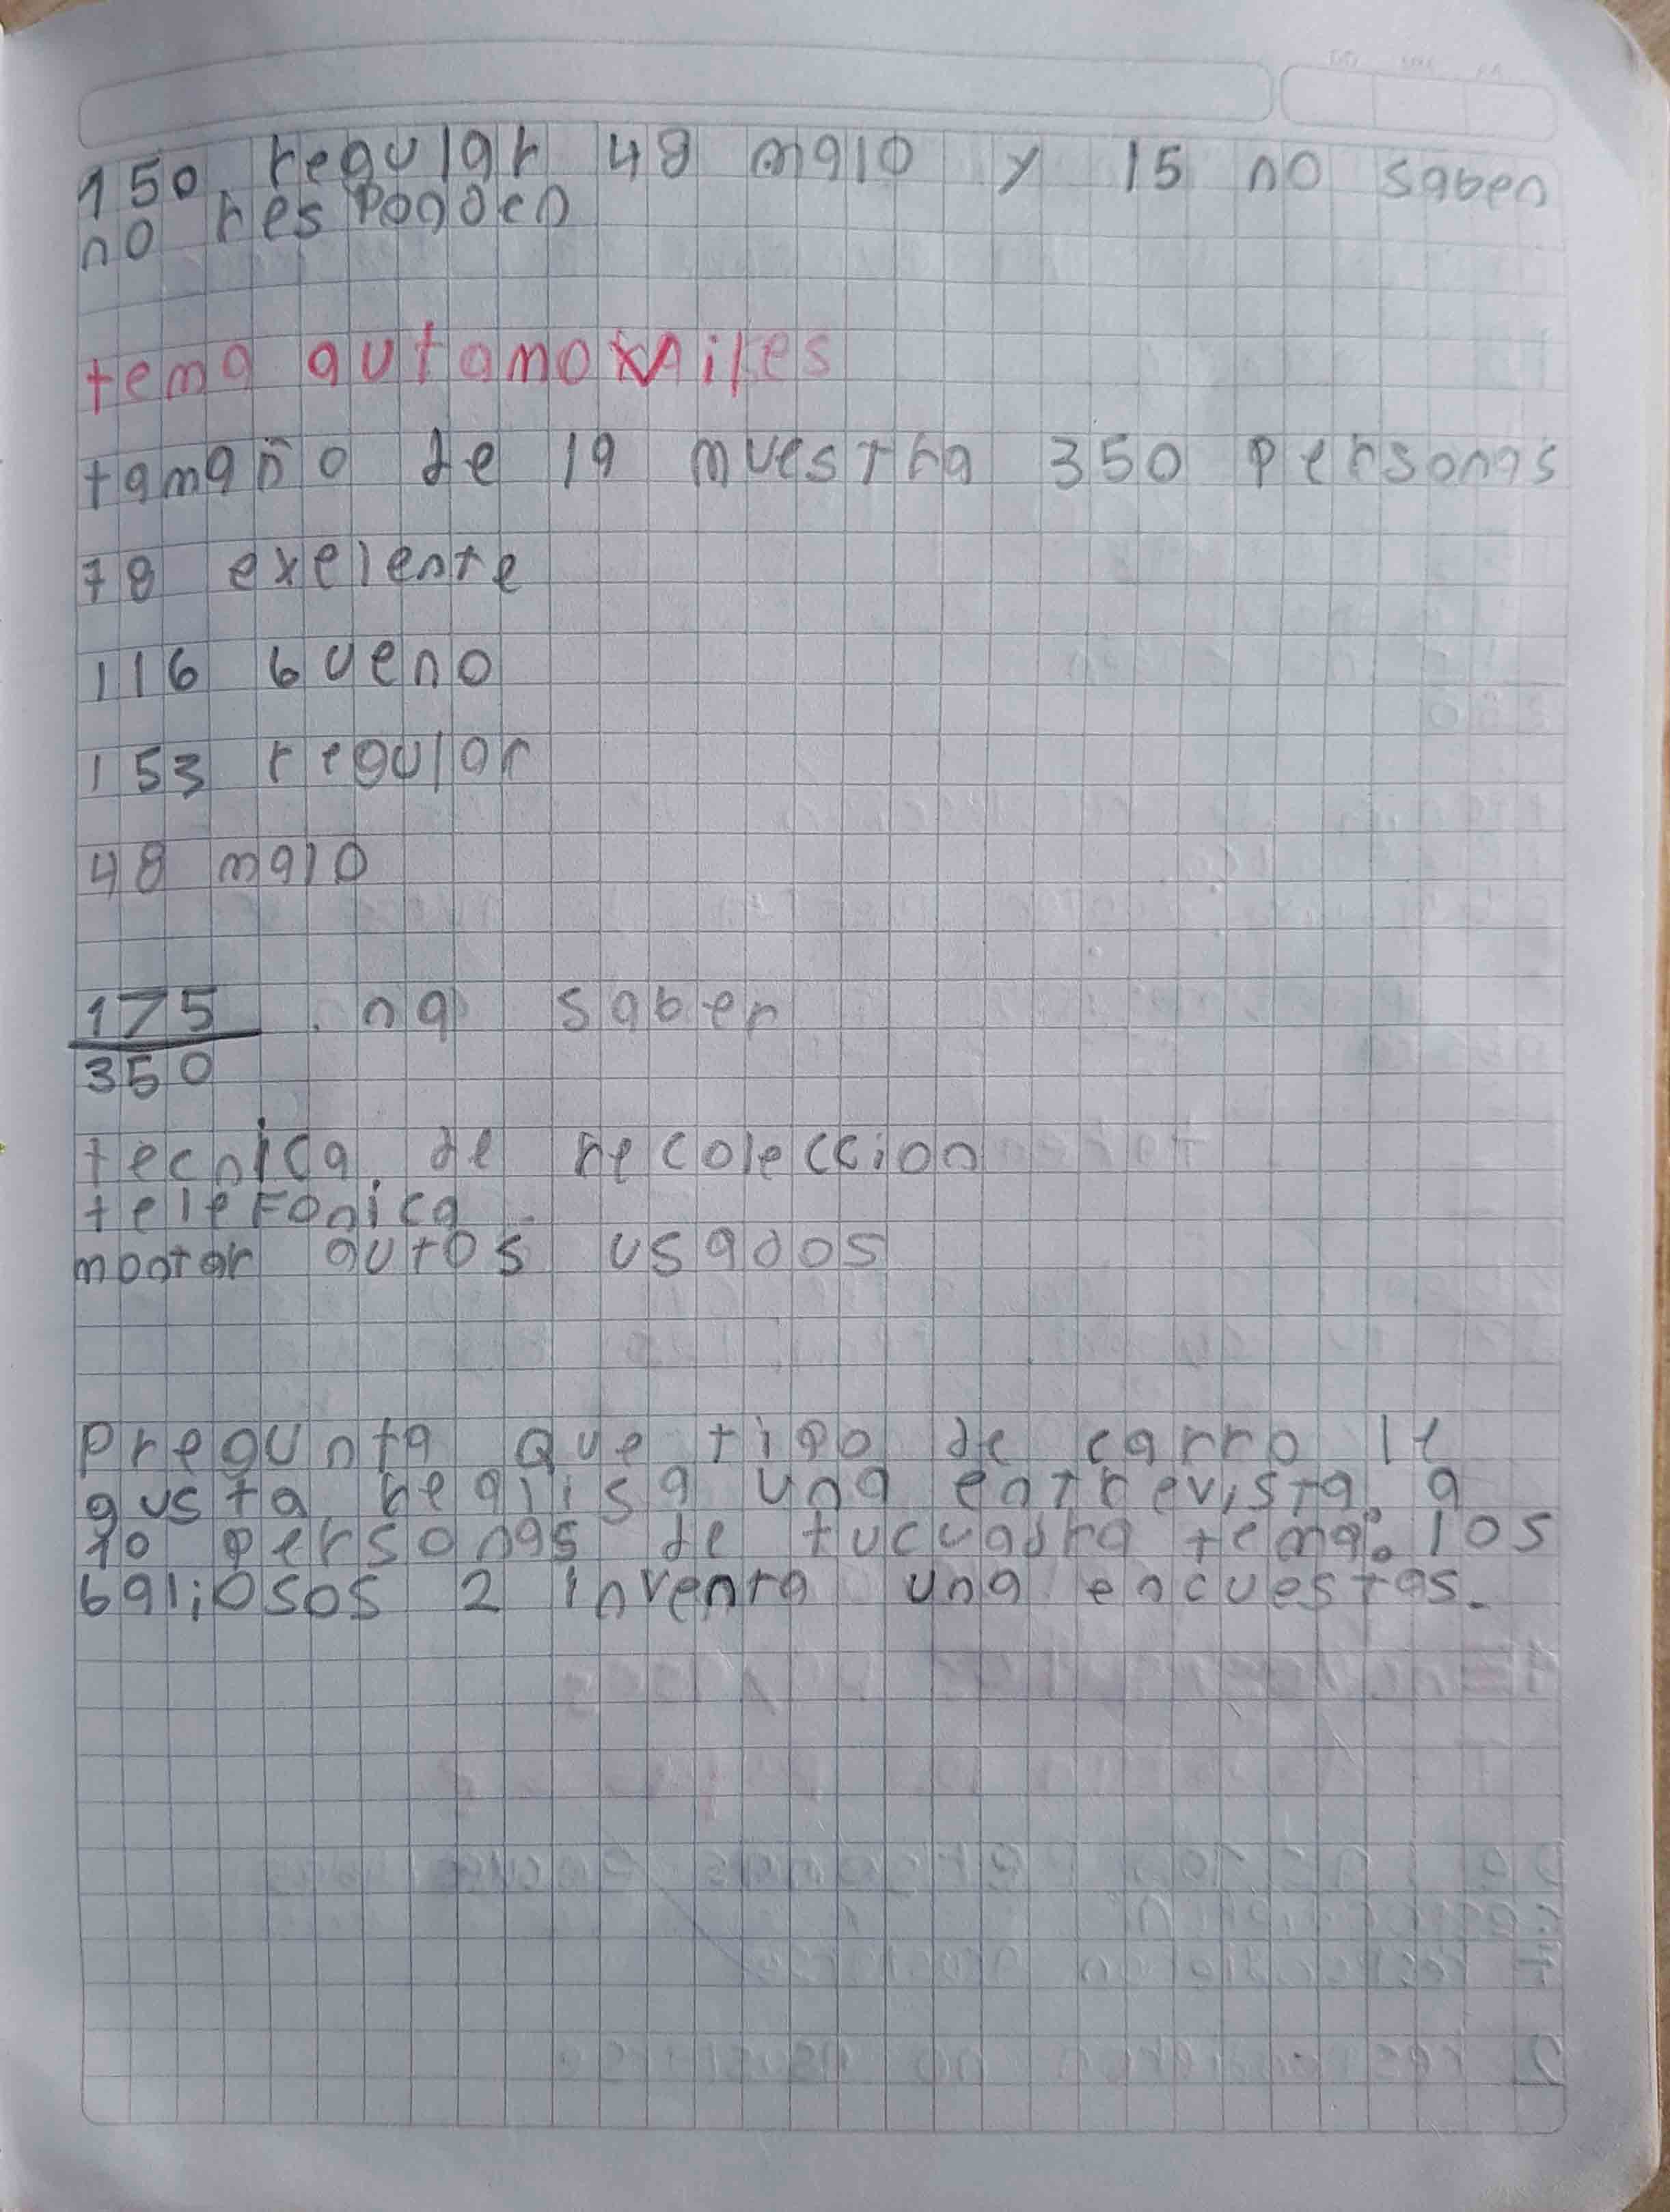 150 regular 48 malo y 15 no saben
no responden
tema automoviles
tamaño de la muestra 350 personas
78 exelente
116 bueno
153 regular
48 malo
175 na saber
350
tecnica de recoleccion
telefonica
montar autos usados
pregunta que tipo de carro le
gusta realisa una entrevista a
10 personas de tu cuadra tema: los
baliosos 2 inventa una encuestas.